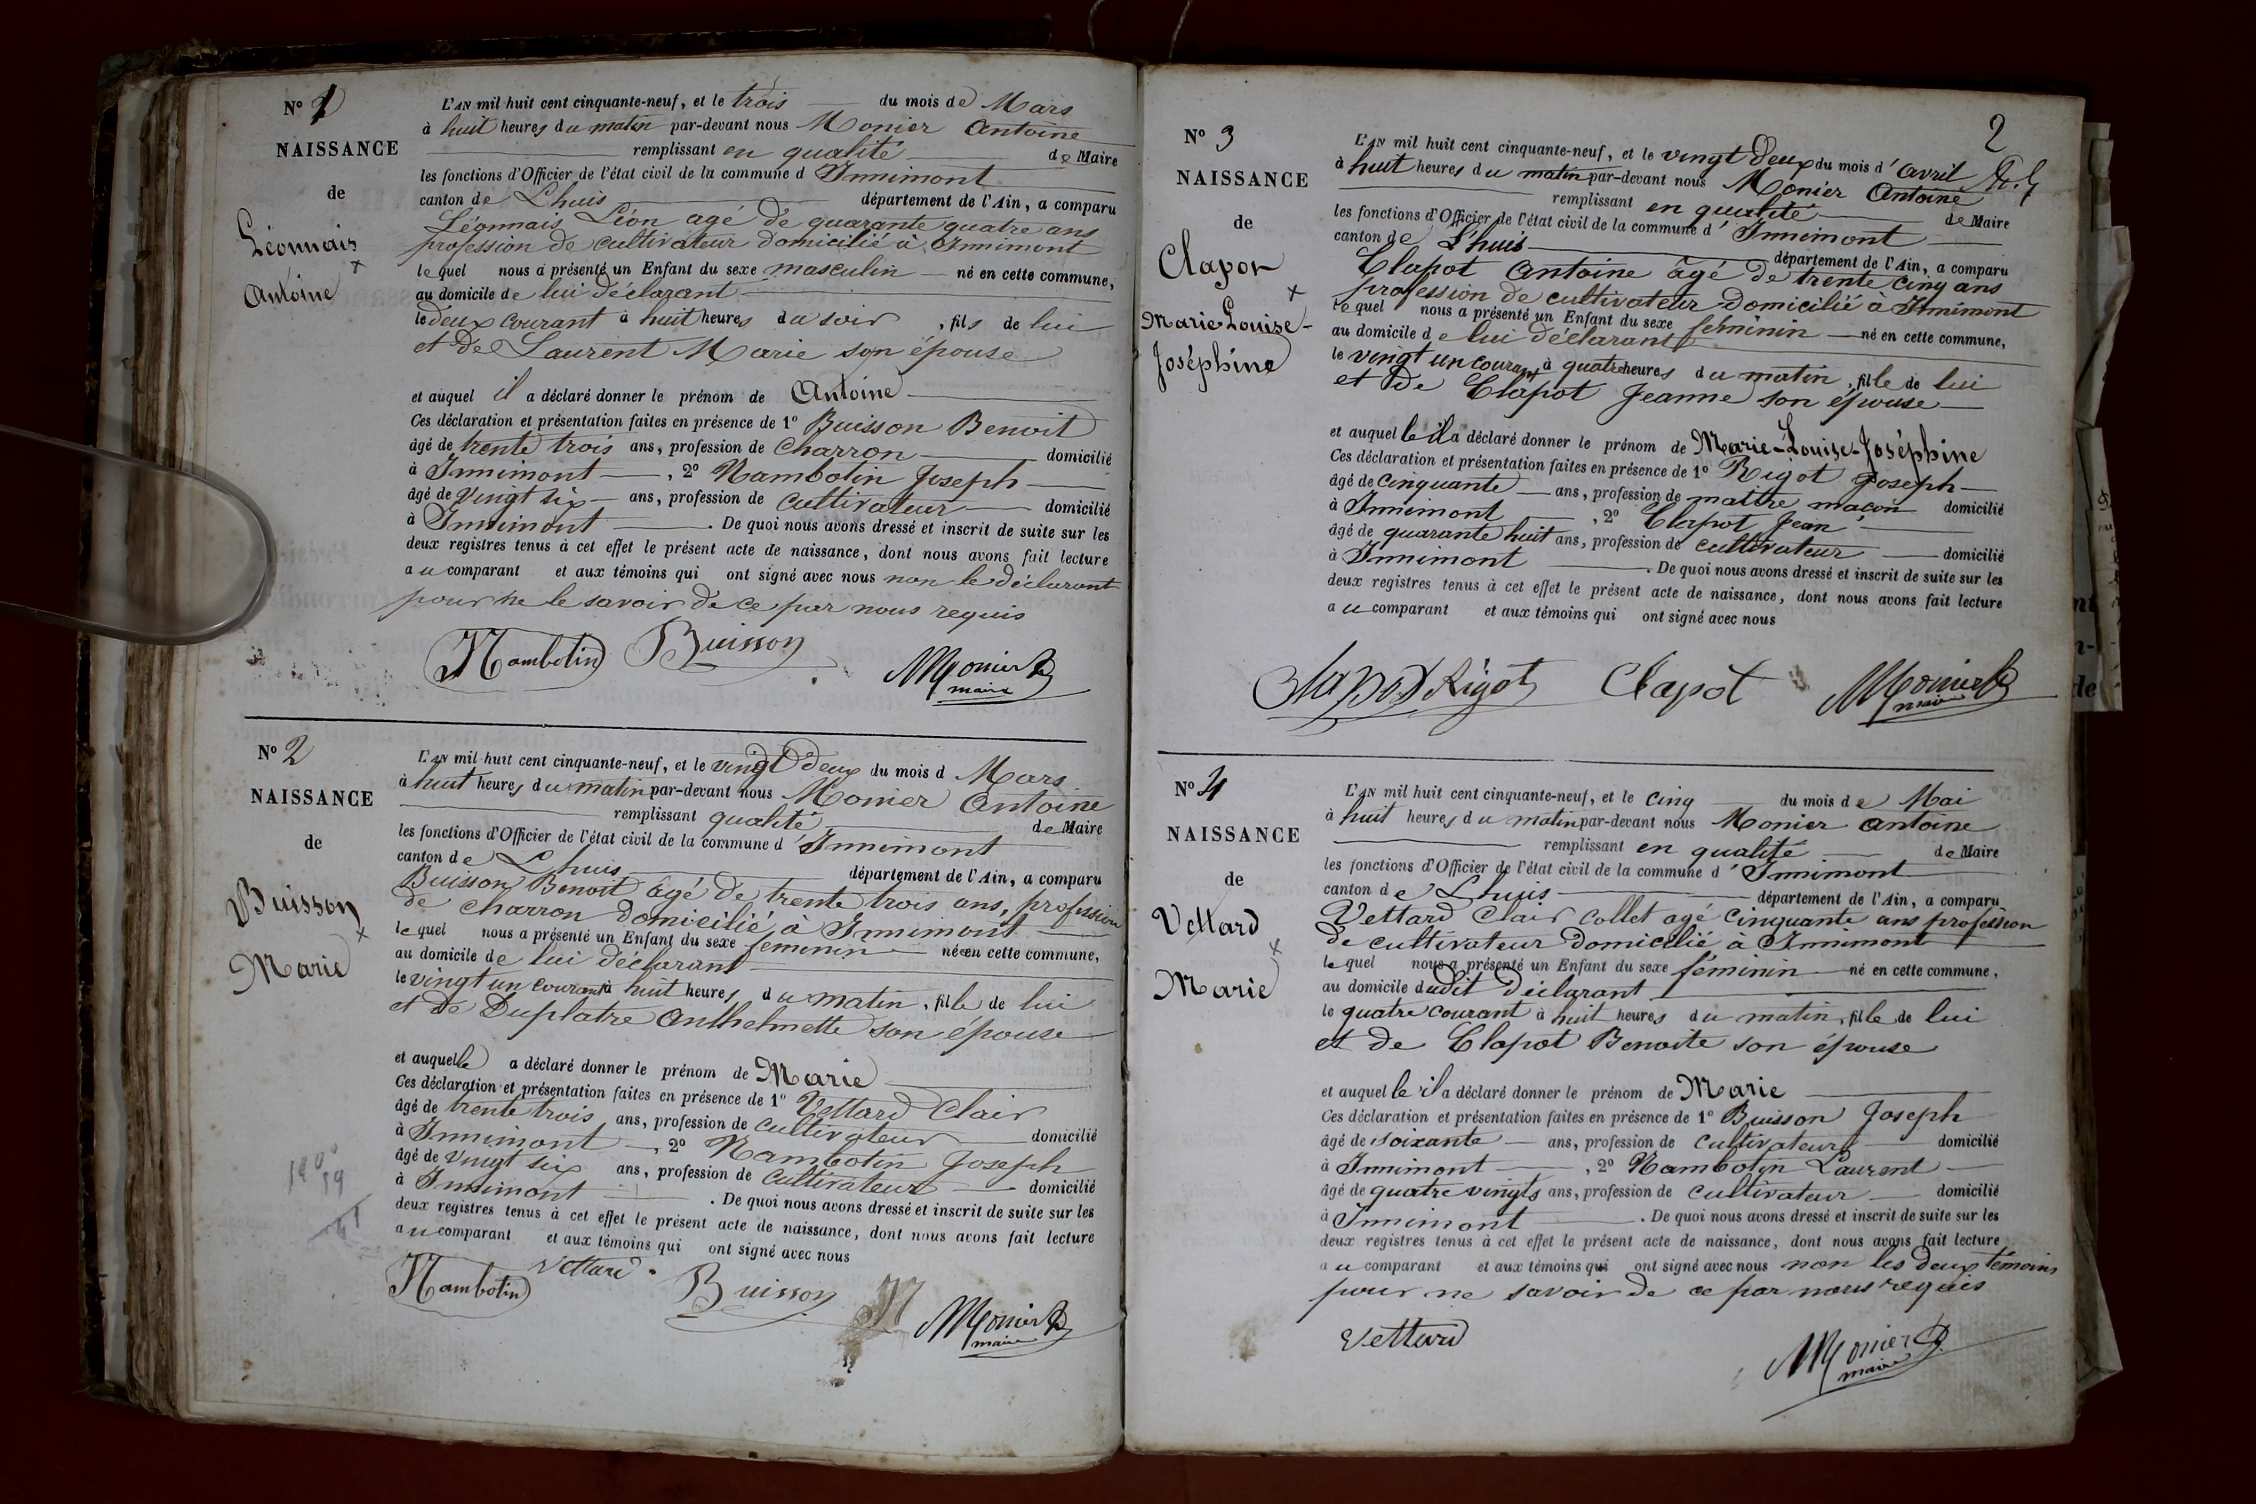 N° 1
NAISSANCE
de
Léonnais
Antoine
L'AN mil huit cent cinquante-neuf, et le trois du mois de Mars
à huit heures du matin par-devant nous Monier Antoine
remplissant en qualité de Maire
les fonctions d'Officier de l'état civil de la commune d Innimont
canton de Lhuis département de l'Ain, a comparu
Léonnais Léon agé de quarante quatre ans
profession de cultivateur domicilié à Innimont
lequel nous a présenté un Enfant du sexe masculin né en cette commune,
au domicile de lui déclarant
le deux courant à huit heures du soir, fils de lui
et de Laurent Marie son épouse
et auquel il a déclaré donner le prénom de Antoine
Ces déclaration et présentation faites en présence de 1° Buisson Benoit
âgé de trente trois ans, profession de Charron domicilié
à Innimont, 2° Nambotin Joseph
âgé de vingt six ans, profession de cultivateur domicilié
à Innimont. De quoi nous avons dressé et inscrit de suite sur les
deux registres tenus à cet effet le présent acte de naissance, dont nous avons fait lecture
au comparant et aux témoins qui ont signé avec nous non le déclarant
pour ne le savoir de ce par nous requis
Nambotin Buisson Monier
maire
N° 2
NAISSANCE
de
Buisson
Marie
L'AN mil huit cent cinquante-neuf, et le vingt deux du mois d Mars
à huit heures du matin par-devant nous Monier Antoine
remplissant qualité de Maire
les fonctions d'Officier de l'état civil de la commune d'Innimont
canton de Lhuis département de l'Ain, a comparu
Buisson Benoit âgé de trente trois ans, profession
de charron domicilié à Innimont
lequel nous a présenté un Enfant du sexe féminin née en cette commune,
au domicile de lui déclarant
le vingt un courant à huit heures du matin, fille de lui
et de Duplatre Anthelmette son épouse
et auquelle a déclaré donner le prénom de Marie
Ces déclaration et présentation faites en présence de 1° Vettard Clair
âgé de trente trois ans, profession de Cultivateur domicilié
à Innimont, 2° Nambotin Joseph
âgé de vingt six ans, profession de Cultivateur domicilié
à Innimont. De quoi nous avons dressé et inscrit de suite sur les
deux registres tenus à cet effet le présent acte de naissance, dont nous avons fait lecture
au comparant et aux témoins qui ont signé avec nous
Nambotin Vettard Buisson Monier
maire
2
N° 3
NAISSANCE
de
Clapot
Marie-Louise-
Joséphine
L'AN mil huit cent cinquante-neuf, et le vingt deux du mois d'avril
à huit heures du matin par-devant nous Monier Antoine
remplissant en qualité de Maire
les fonctions d'Officier de l'état civil de la commune d'Innimont
canton de L'huis département de l'Ain, a comparu
Clapot Antoine âgé de trente cinq ans
profession de cultivateur domicilié à Innimont
lequel nous a présenté un Enfant du sexe féminin né en cette commune,
au domicile de lui déclarant
le vingt un courant à quatre heures du matin, fille de lui
et de Clapot Jeanne son épouse
et auquelle il a déclaré donner le prénom de Marie-Louise-Joséphine
Ces déclaration et présentation faites en présence de 1° Rigot Joseph
âgé de cinquante ans, profession de maître maçon domicilié
à Innimont, 2° Clapot Jean
âgé de quarante huit ans, profession de cultivateur domicilié
à Innimont. De quoi nous avons dressé et inscrit de suite sur les
deux registres tenus à cet effet le présent acte de naissance, dont nous avons fait lecture
au comparant et aux témoins qui ont signé avec nous
Clapot Rigot Clapot Monier
maire
N° 4
NAISSANCE
de
Vettard
Marie
L'AN mil huit cent cinquante-neuf, et le cinq du mois de Mai
à huit heures du matin par-devant nous Monier Antoine
remplissant en qualité de Maire
les fonctions d'Officier de l'état civil de la commune d'Innimont
canton de Lhuis département de l'Ain, a comparu
Vettard Clair Collet agé cinquante ans profession
de cultivateur domicilié à Innimont
lequel nous a présenté un Enfant du sexe féminin né en cette commune,
au domicile dudit déclarant
le quatre courant à huit heures du matin, fille de lui
et de Clapot Benoite son épouse
et auquelle il a déclaré donner le prénom de Marie
Ces déclaration et présentation faites en présence de 1° Buisson Joseph
âgé de soixante ans, profession de cultivateur domicilié
à Innimont, 2° Nambotin Laurent
âgé de quatre vingts ans, profession de cultivateur domicilié
à Innimont. De quoi nous avons dressé et inscrit de suite sur les
deux registres tenus à cet effet le présent acte de naissance, dont nous avons fait lecture
au comparant et aux témoins qui ont signé avec nous non les deux témoins
pour ne savoir de ce par nous requis
Vettard Monier
maire